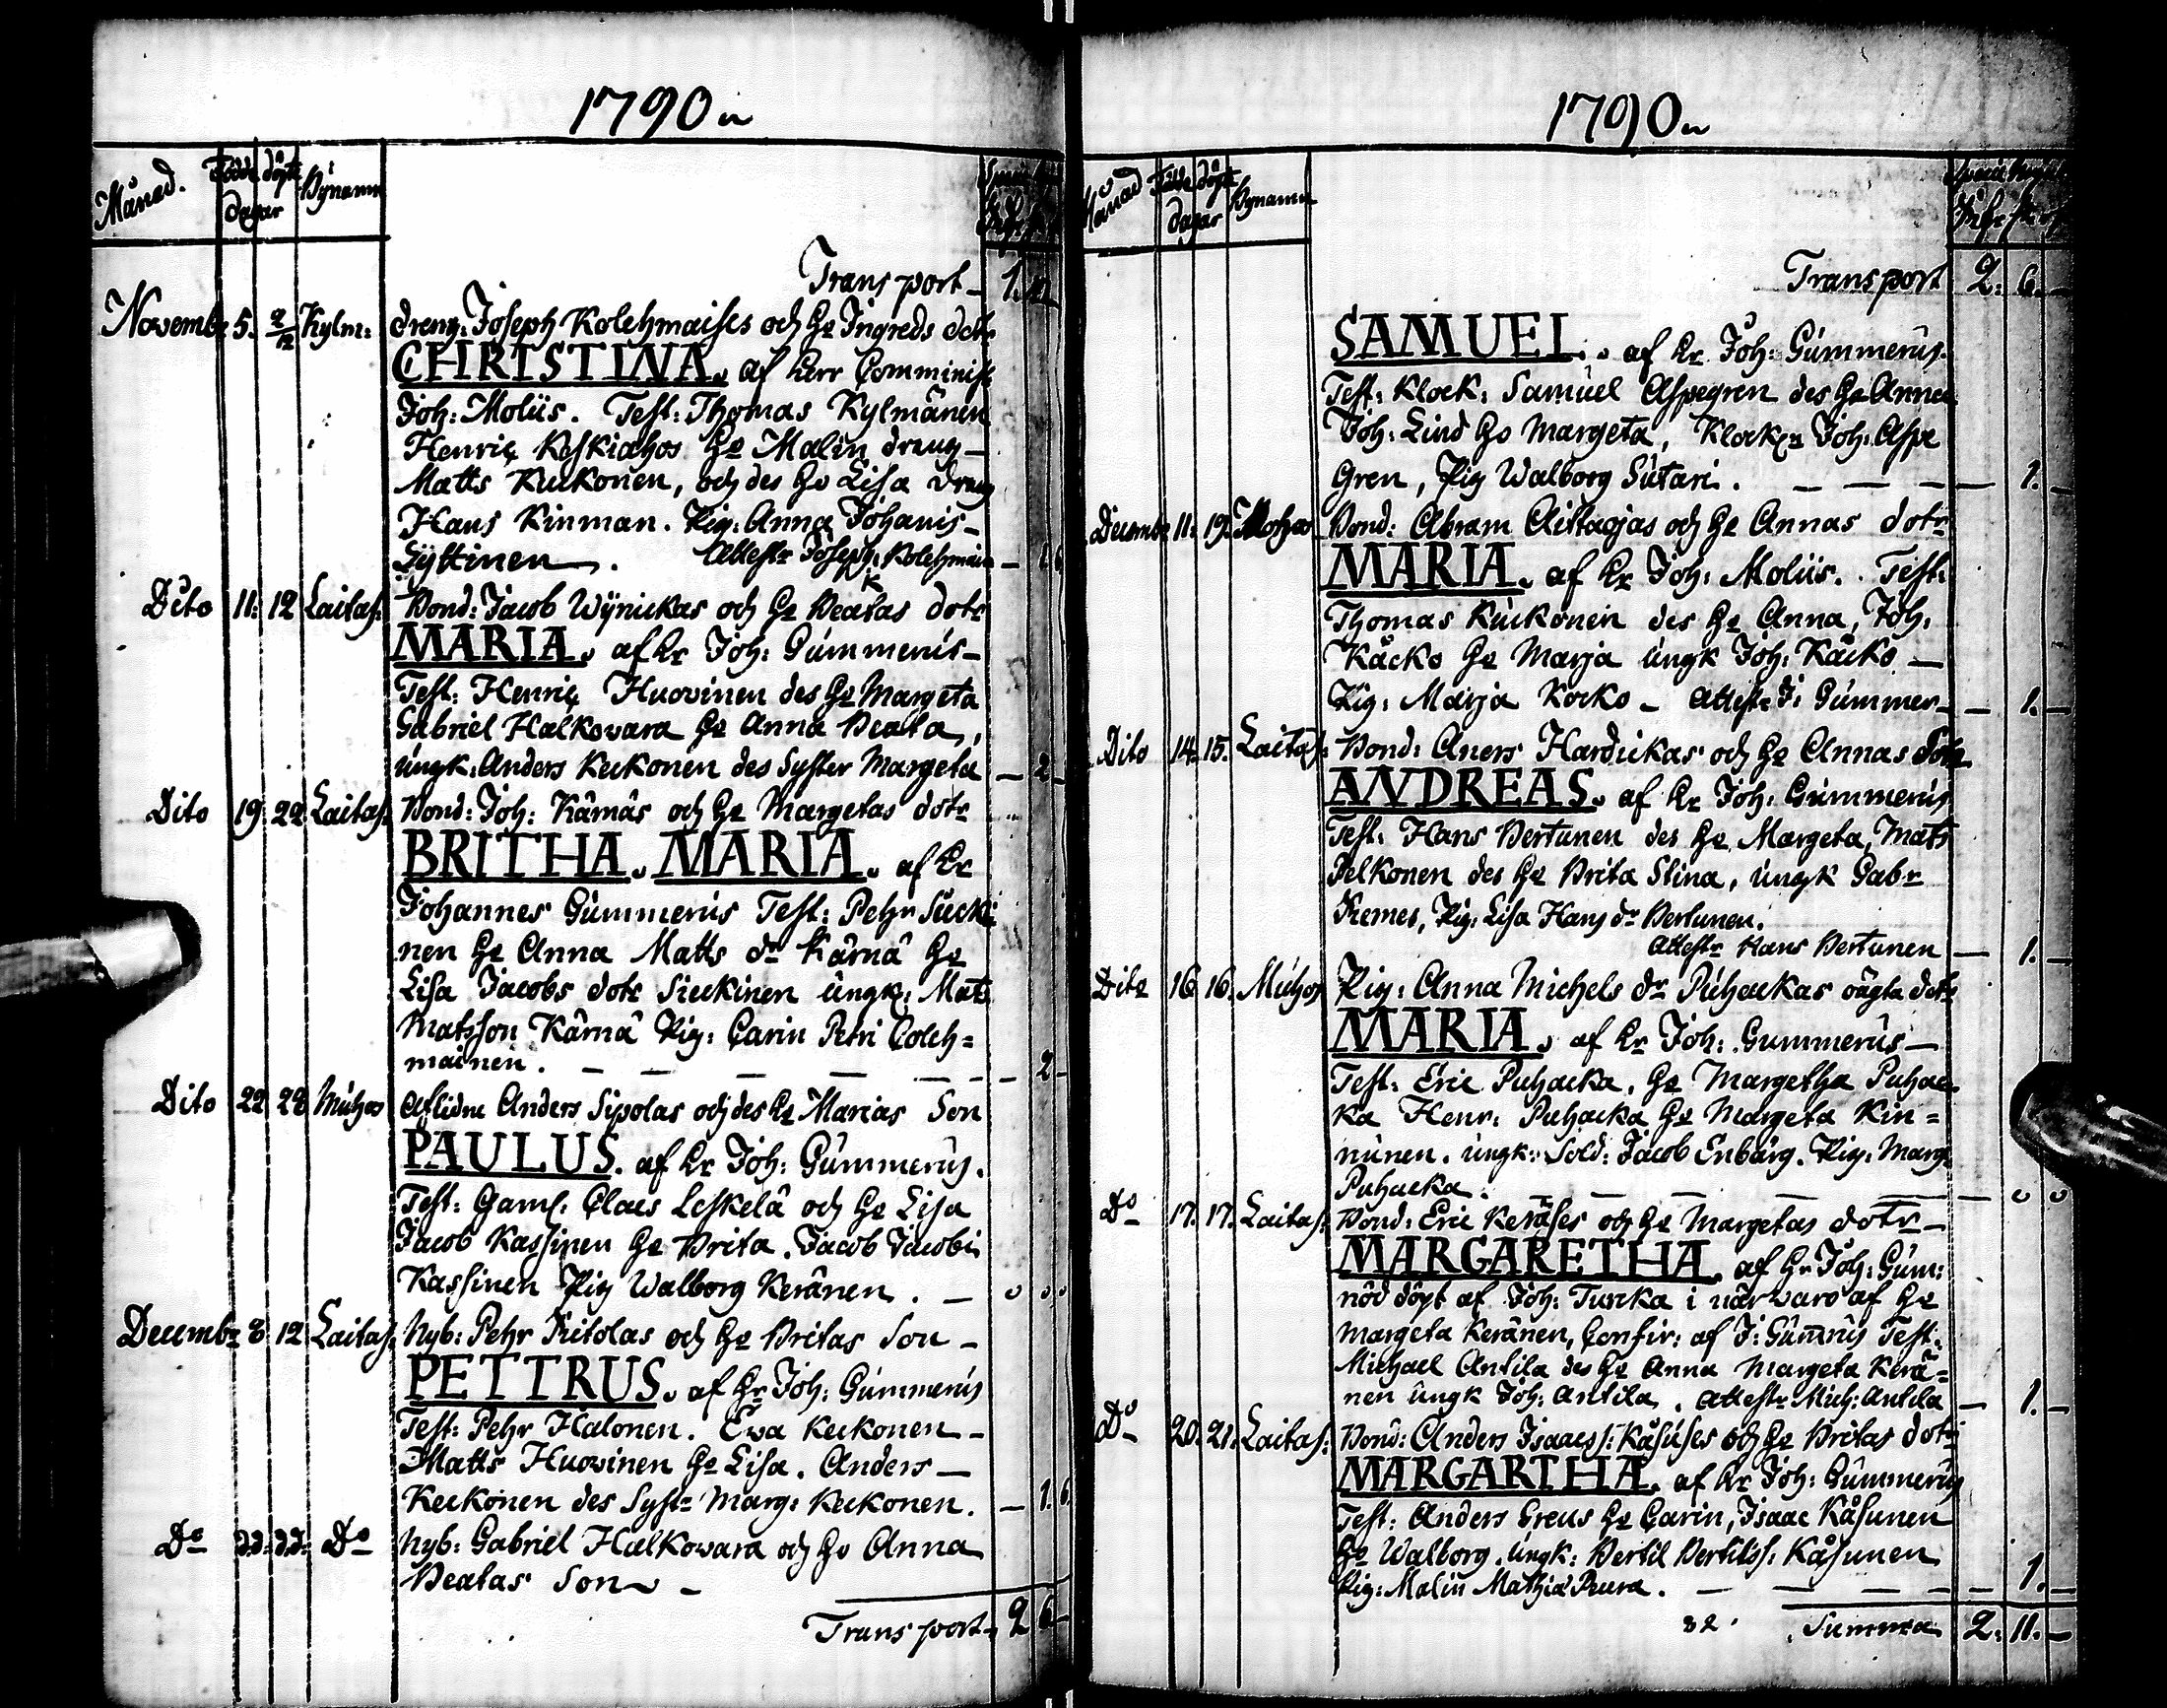 1790
Månad. Födde döpte dagar Bÿnamn
Transport 1.
Novembr 5. 2/12 Kylm: dreng: Joseph Kolehmaises och Hu Ingreds dotr
CHRISTINA. af herr Comminist
Joh: Moliis. Test: Thomas Kylmänen
Henric Keskiahos Hu Malin dreng
Matts Kukkonen, och des Hu Lisa dreng
Hans Kinman. Pig: Anna Johanis
Lyttinen. Attestr Joseph: Kolehmain
Dito 11. 12 Laitas: Bond: Jacob Wÿnickas och Hu Beatas dotr
MARIA. af hr Joh: Gummerus
Test: Henric Huovinen des Hu Margeta
Gabriel Halkowara Hu Anna Beata,
ungk: Anders Keckonen des Syster Margeta — 2
Dito 19. 22 Laitas: Bond: Joh: Kärnäs och Hu Margetas dotr
BRITHA. MARIA. af hr
Johannes Gummerus Test: Pehr Sucki
nen Hu Anna Matts dr Kärnä Hu
Lisa Jacobs dotr Sieckinen ungk: Mats
Matsson Kärnä Pig: Carin Petri Coleh=
mainen. — 2
Dito 22 28 Muhos Aflidne Anders Sipolas och des Hu Marias Son
PAULUS. af hr Joh: Gummerus.
Test: Gaml. Claes Leskelä och Hu Lisa
Jacob Kassinen Hu Brita. Jacob Jacobi
Kassinen Pig Walborg Keränen. — 0 0 0
Decembr 8. 12 Laitas: Nyb: Pehr Kitolas och Hu Britas Son
PETTRUS. af Hr Joh: Gummerus
Test: Pehr Halonen. Ewa Keckonen
Matts Huovinen Hu Lisa. Anders
Keckonen des Systr Marg: Keckonen. — 1. 6.
Do dd: dd: Do Nyb: Gabriel Halkowara och Hu Anna
Beatas Son
Transport 2 6
1790
Månad Födde döpte dagar Bynamn
Transport 2. 6.
SAMUEL. af hr Joh: Gummerus.
Test: Klock: Samuel Aspegren des Hu Anna
Joh: Lind Hu Margeta, Klockn Joh: Aspe
Gren, Pig Walborg Sutari. — 1.
Decembr 11. 19. Muhos Bond: Abram Aittaojas och Hu Annas dotr
MARIA. af hr Joh: Moliis. Test:
Thomas Kuckonen des Hu Anna, Joh.
Käcko Hu Marja ungk Joh: Käcko
Pig: Marja Kocko — Attestr J: Gummer — 1.
Dito 14. 15. Laitas: Bond: Aners Hardickas och Hu Annas Son
ANDREAS. af hr Joh: Gummerus
Test: Hans Bertunen des Hu Margeta, Mats
Pelkonen des Hu Brita Stina, ungk Gabr
Remes, Pig: Lisa Hans dr Bertunen.
Attestr Hans Bertunen — 1.
Dito 16. 16. Muhos Pig: Anna Michels dr Puhackas oägta dotr
MARIA. af hr Joh: Gummerus
Test: Eric Puhacka, Hu Margetha Puhac
ka Henr: Puhacka Hu Margeta Kin=
nunen. ungk: Sold: Jacob Enbärg. Pig: Marg
Puhacka. — 0 0
Do 17. 17. Laitas: Bond: Eric Keräses och Hu Margetas dotr
MARGARETHA. af Hr Joh: Gum:
nöd döpt af Joh: Turcka i närwaro af Hu
Margeta Keränen, Confir: af J: Gumrus Test:
Michael Antila des Hu Anna Margeta Kerä=
nen ungk Joh: Antila. Attestr Mich: Antila — 1.
Do 20. 21. Laitas: Bond: Anders Isaacs: Kåsuses och Hu Britas dotr
MARGARTHA. af hr Joh: Gummerus
Test: Anders Greus Hu Carin, Isaac Kåsunen
Hu Walborg. ungk: Bertil Bertilss: Kåsunen
Pig: Malin Mathia Peura. — 1.
32. Summa 2. 11.